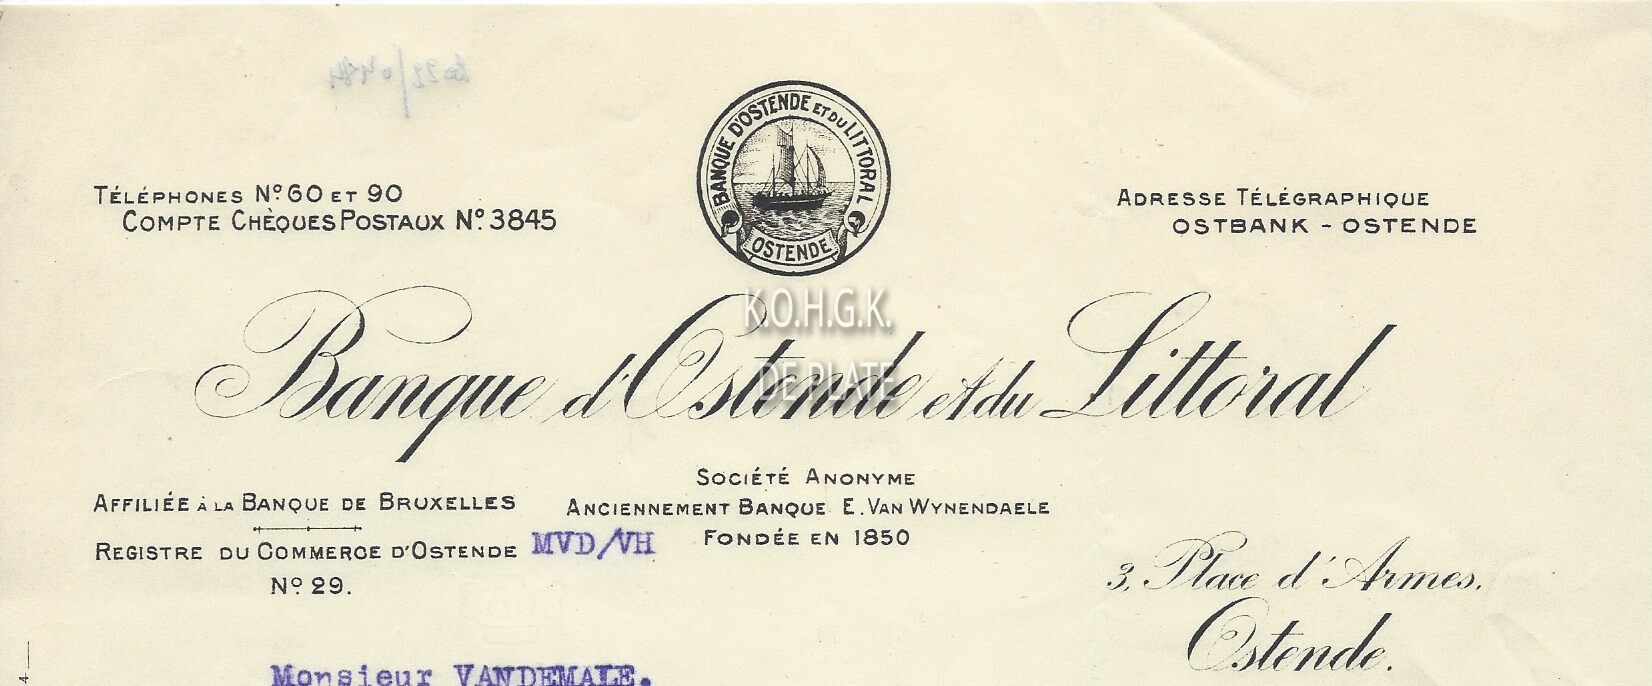 BANQUE D'OSTENDE ET DU LITTORAL
OSTENDE
TÉLÉPHONES Nº 60 ET 90
COMPTE CHÈQUES POSTAUX Nº 3845
ADRESSE TÉLÉGRAPHIQUE
OSTBANK - OSTENDE
K.O.H.G.K.
DE PLATE
Banque d'Ostende et du Littoral
SOCIÉTÉ ANONYME
AFFILIÉE À LA BANQUE DE BRUXELLES
ANCIENNEMENT BANQUE E. VAN WYNENDAELE
REGISTRE DU COMMERCE D'OSTENDE
Nº 29.
MVD/VH
FONDÉE EN 1850
3, Place d'Armes.
Ostende.
Monsieur VANDEMALE.
4